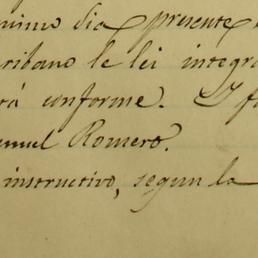 nimo dia presente
ribano le lei integra
rá conforme. I f
nuel Romero.
instructivo, segun la